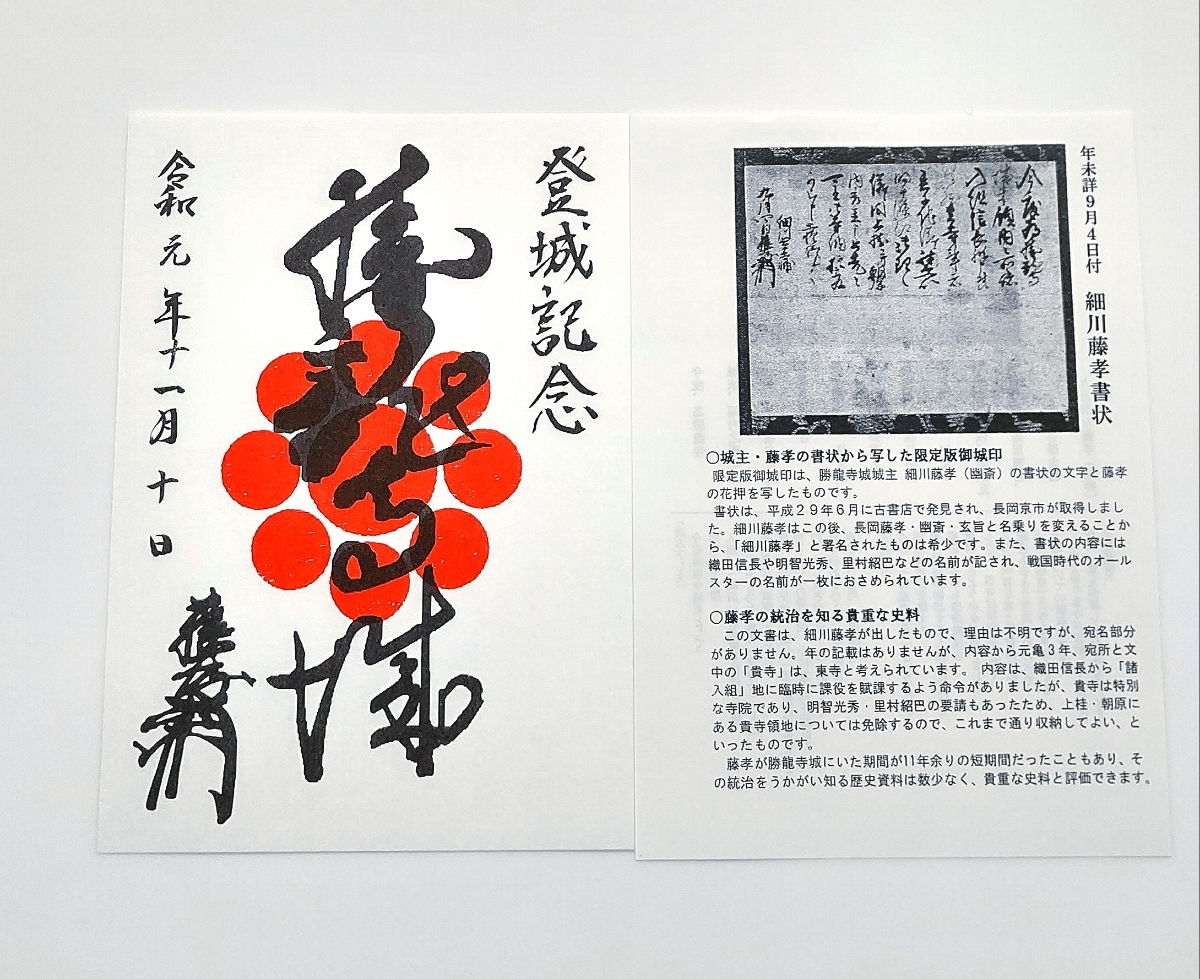 登城記念
勝龍寺城
令和元年十一月十日
藤孝
年未詳9月4日付　細川藤孝書状
○城主・藤孝の書状から写した限定版御城印
限定版御城印は、勝龍寺城城主 細川藤孝（幽斎）の書状の文字と藤孝
の花押を写したものです。
書状は、平成29年6月に古書店で発見され、長岡京市が取得しまし
た。細川藤孝はこの後、長岡藤孝・幽斎・玄旨と名乗りを変えることか
ら、「細川藤孝」と署名されたものは希少です。また、書状の内容には
織田信長や明智光秀、里村紹巴などの名前が記され、戦国時代のオール
スターの名前が一枚におさめられています。
○藤孝の統治を知る貴重な史料
この文書は、細川藤孝が出したもので、理由は不明ですが、宛名部分
がありません。年の記載はありませんが、内容から元亀3年、宛所と文
中の「貴寺」は、東寺と考えられています。 内容は、織田信長から「諸
入組」地に臨時に課役を賦課するよう命令がありましたが、貴寺は特別
な寺院であり、明智光秀・里村紹巴の要請もあったため、上桂・朝原に
ある貴寺領地については免除するので、これまで通り収納してよい、と
いったものです。
藤孝が勝龍寺城にいた期間が11年余りの短期間だったこともあり、そ
の統治をうかがい知る歴史資料は数少なく、貴重な史料と評価できます。